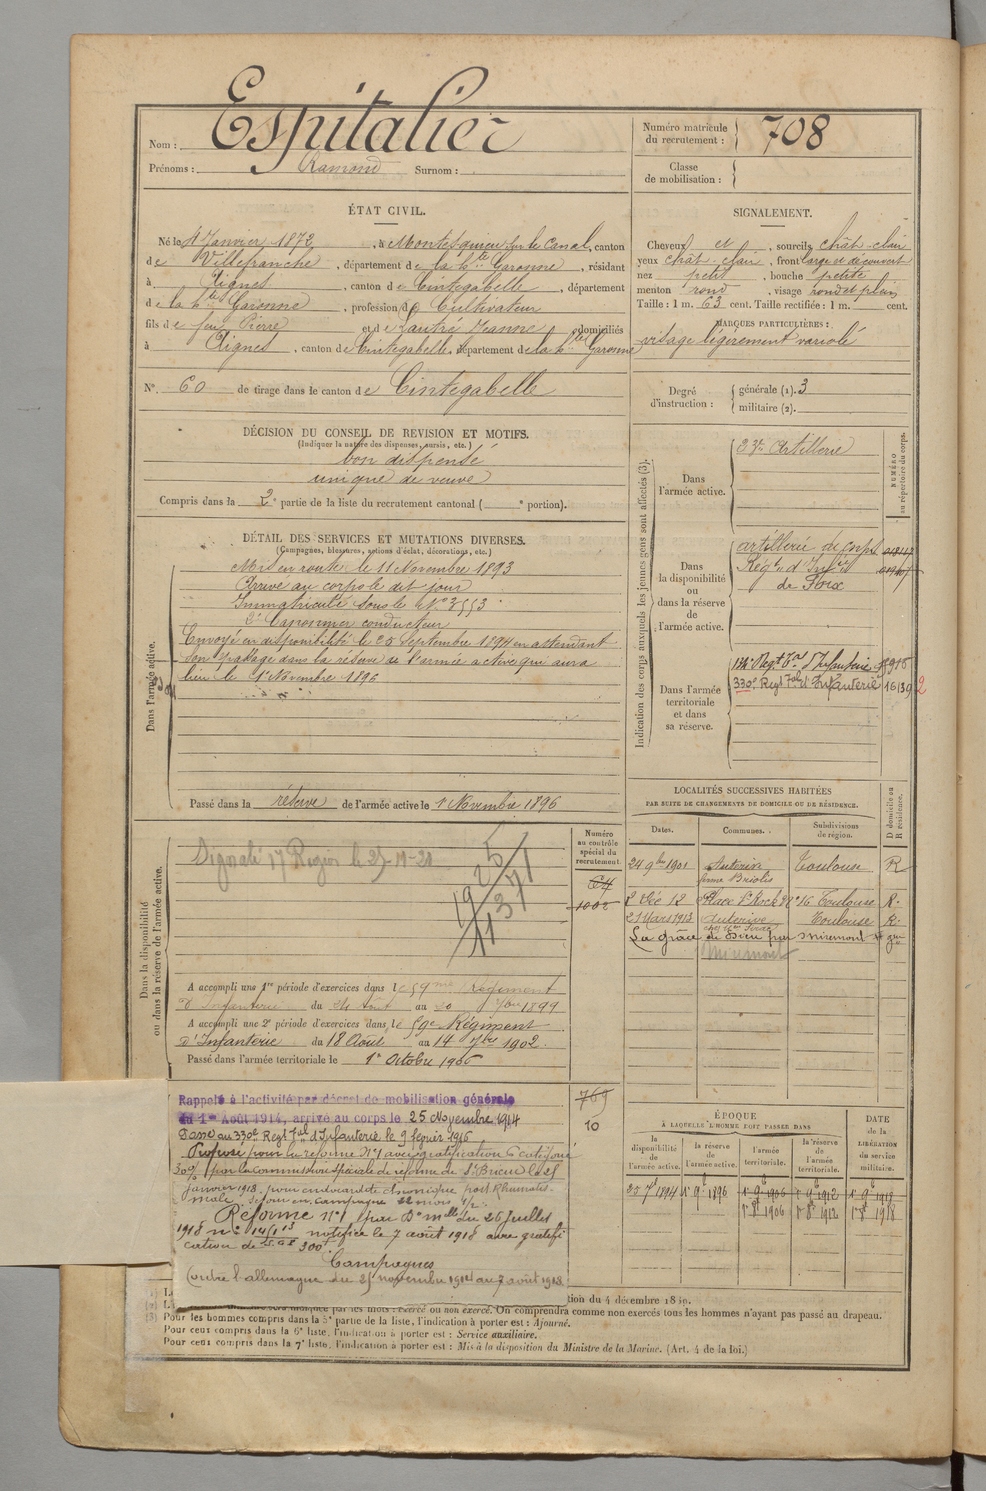 Nom : Espitalier
Prénoms : Ramond Surnom :
Numéro matricule du recrutement : 708
Classe de mobilisation :
ÉTAT CIVIL.
Né le 4 Janvier 1872, à Montesquieu sur le Canal, canton
de Villefranche, département de la hte Garonne, résidant
à Aignes, canton de Cintegabelle, département
de la hte Garonne, profession de Cultivateur
fils de feu Pierre et de Lautré Jeanne, domiciliés
à Aignes, canton de Cintegabelle, département de la hte Garonne
N° 60 de tirage dans le canton de Cintegabelle
SIGNALEMENT.
Cheveux et, sourcils chât-clair
yeux chât-clair, front large et découvert
nez petit, bouche petite
menton rond, visage rond et plein
Taille : 1 m. 63 cent. Taille rectifiée : 1 m. cent.
MARQUES PARTICULIÈRES :
visage légèrement variolé
Degré d'instruction : générale (1). 3
militaire (2).
DÉCISION DU CONSEIL DE REVISION ET MOTIFS.
(Indiquer la nature des dispenses, sursis, etc.)
bon dispensé
unique de veuve
Compris dans la 2e partie de la liste du recrutement cantonal ( e portion).
DÉTAIL DES SERVICES ET MUTATIONS DIVERSES.
(Campagnes, blessures, actions d'éclat, décorations, etc.)
Dans l'armée active.
Mis en route le 11 Novembre 1893
Arrivé au corps le dit jour
Immatriculé sous le N° 3553
2e Canonnier conducteur
Envoyé en disponibilité le 25 Septembre 1894 en attendant
son passage dans la réserve de l'armée active qui aura
lieu le 1er Novembre 1896
Passé dans la réserve de l'armée active le 1er Novembre 1896
Indication des corps auxquels les jeunes gens sont affectés (3).
NUMÉRO au répertoire du corps.
Dans l'armée active.
Artillerie
Dans la disponibilité ou dans la réserve de l'armée active.
artillerie de corps
Régt d'Infie
de Foix
Dans l'armée territoriale et dans sa réserve.
134e Regt Tal d'Infanterie
330e Regt Tal d'Infanterie 16139
2
LOCALITÉS SUCCESSIVES HABITÉES
PAR SUITE DE CHANGEMENTS DE DOMICILE OU DE RÉSIDENCE.
Dates. Communes. Subdivisions de région. D domicile ou R résidence.
24 9bre 1901 Auterive Toulouse R
ferme Briolis
2 Déc 12 Place St Roch Toulouse R.
21 Mars 1913 Auterive Toulouse R.
La grâce de Dieu par Miremont
Miremont
Dans la disponibilité ou dans la réserve de l'armée active.
Numéro au contrôle spécial du recrutement.
1002
Signalé 17 Region le
A accompli une 1re période d'exercices dans le 59me Régiment
d'Infanterie du 24 Août au 20 7bre 1899
A accompli une 2e période d'exercices dans le 59e Régiment
d'Infanterie du 18 Août au 14 7bre 1902.
Passé dans l'armée territoriale le 1er Octobre 1906
769
10
Rappelé à l'activité par décret de mobilisation générale
du 1er Août 1914, arrivé au corps le 25 Novembre 1914
Passé au 330e Regt Tal d'Infanterie le 9 février 1916
Proposé pour la réforme N°1 avec gratification 6e catégorie
30% par la commission spéciale de réforme de St Brieuc le 25
janvier 1918 pour endocardite chronique post. Rhumatis-
male, séjour en campagne 22 mois
Réformé N°1 par Don mlle du 26 Juillet
1918 notifiée le 7 août 1918 avec gratifi
cation de 300f
Campagnes
Contre l'allemagne du 25 novembre 1914 au 7 août 1918
ÉPOQUE
À LAQUELLE L'HOMME DOIT PASSER DANS
la disponibilité de l'armée active. la réserve de l'armée active. l'armée territoriale. la réserve de l'armée territoriale.
DATE de la LIBÉRATION du service militaire.
1894 1er 9e 1896 1er 9e 1906 1er 9e 1912 1er 9e 1918
1er 8e 1906 1er 8e 1912 1er 8e 1918
tion du 4 décembre 1889.
par les mots : exercé ou non exercé. On comprendra comme non exercés tous les hommes n'ayant pas passé au drapeau.
(3) Pour les hommes compris dans la 5e partie de la liste, l'indication à porter est : Ajourné.
Pour ceux compris dans la 6e liste, l'indication à porter est : Service auxiliaire.
Pour ceux compris dans la 7e liste, l'indication à porter est : Mis à la disposition du Ministre de la Marine. (Art. 4 de la loi.)